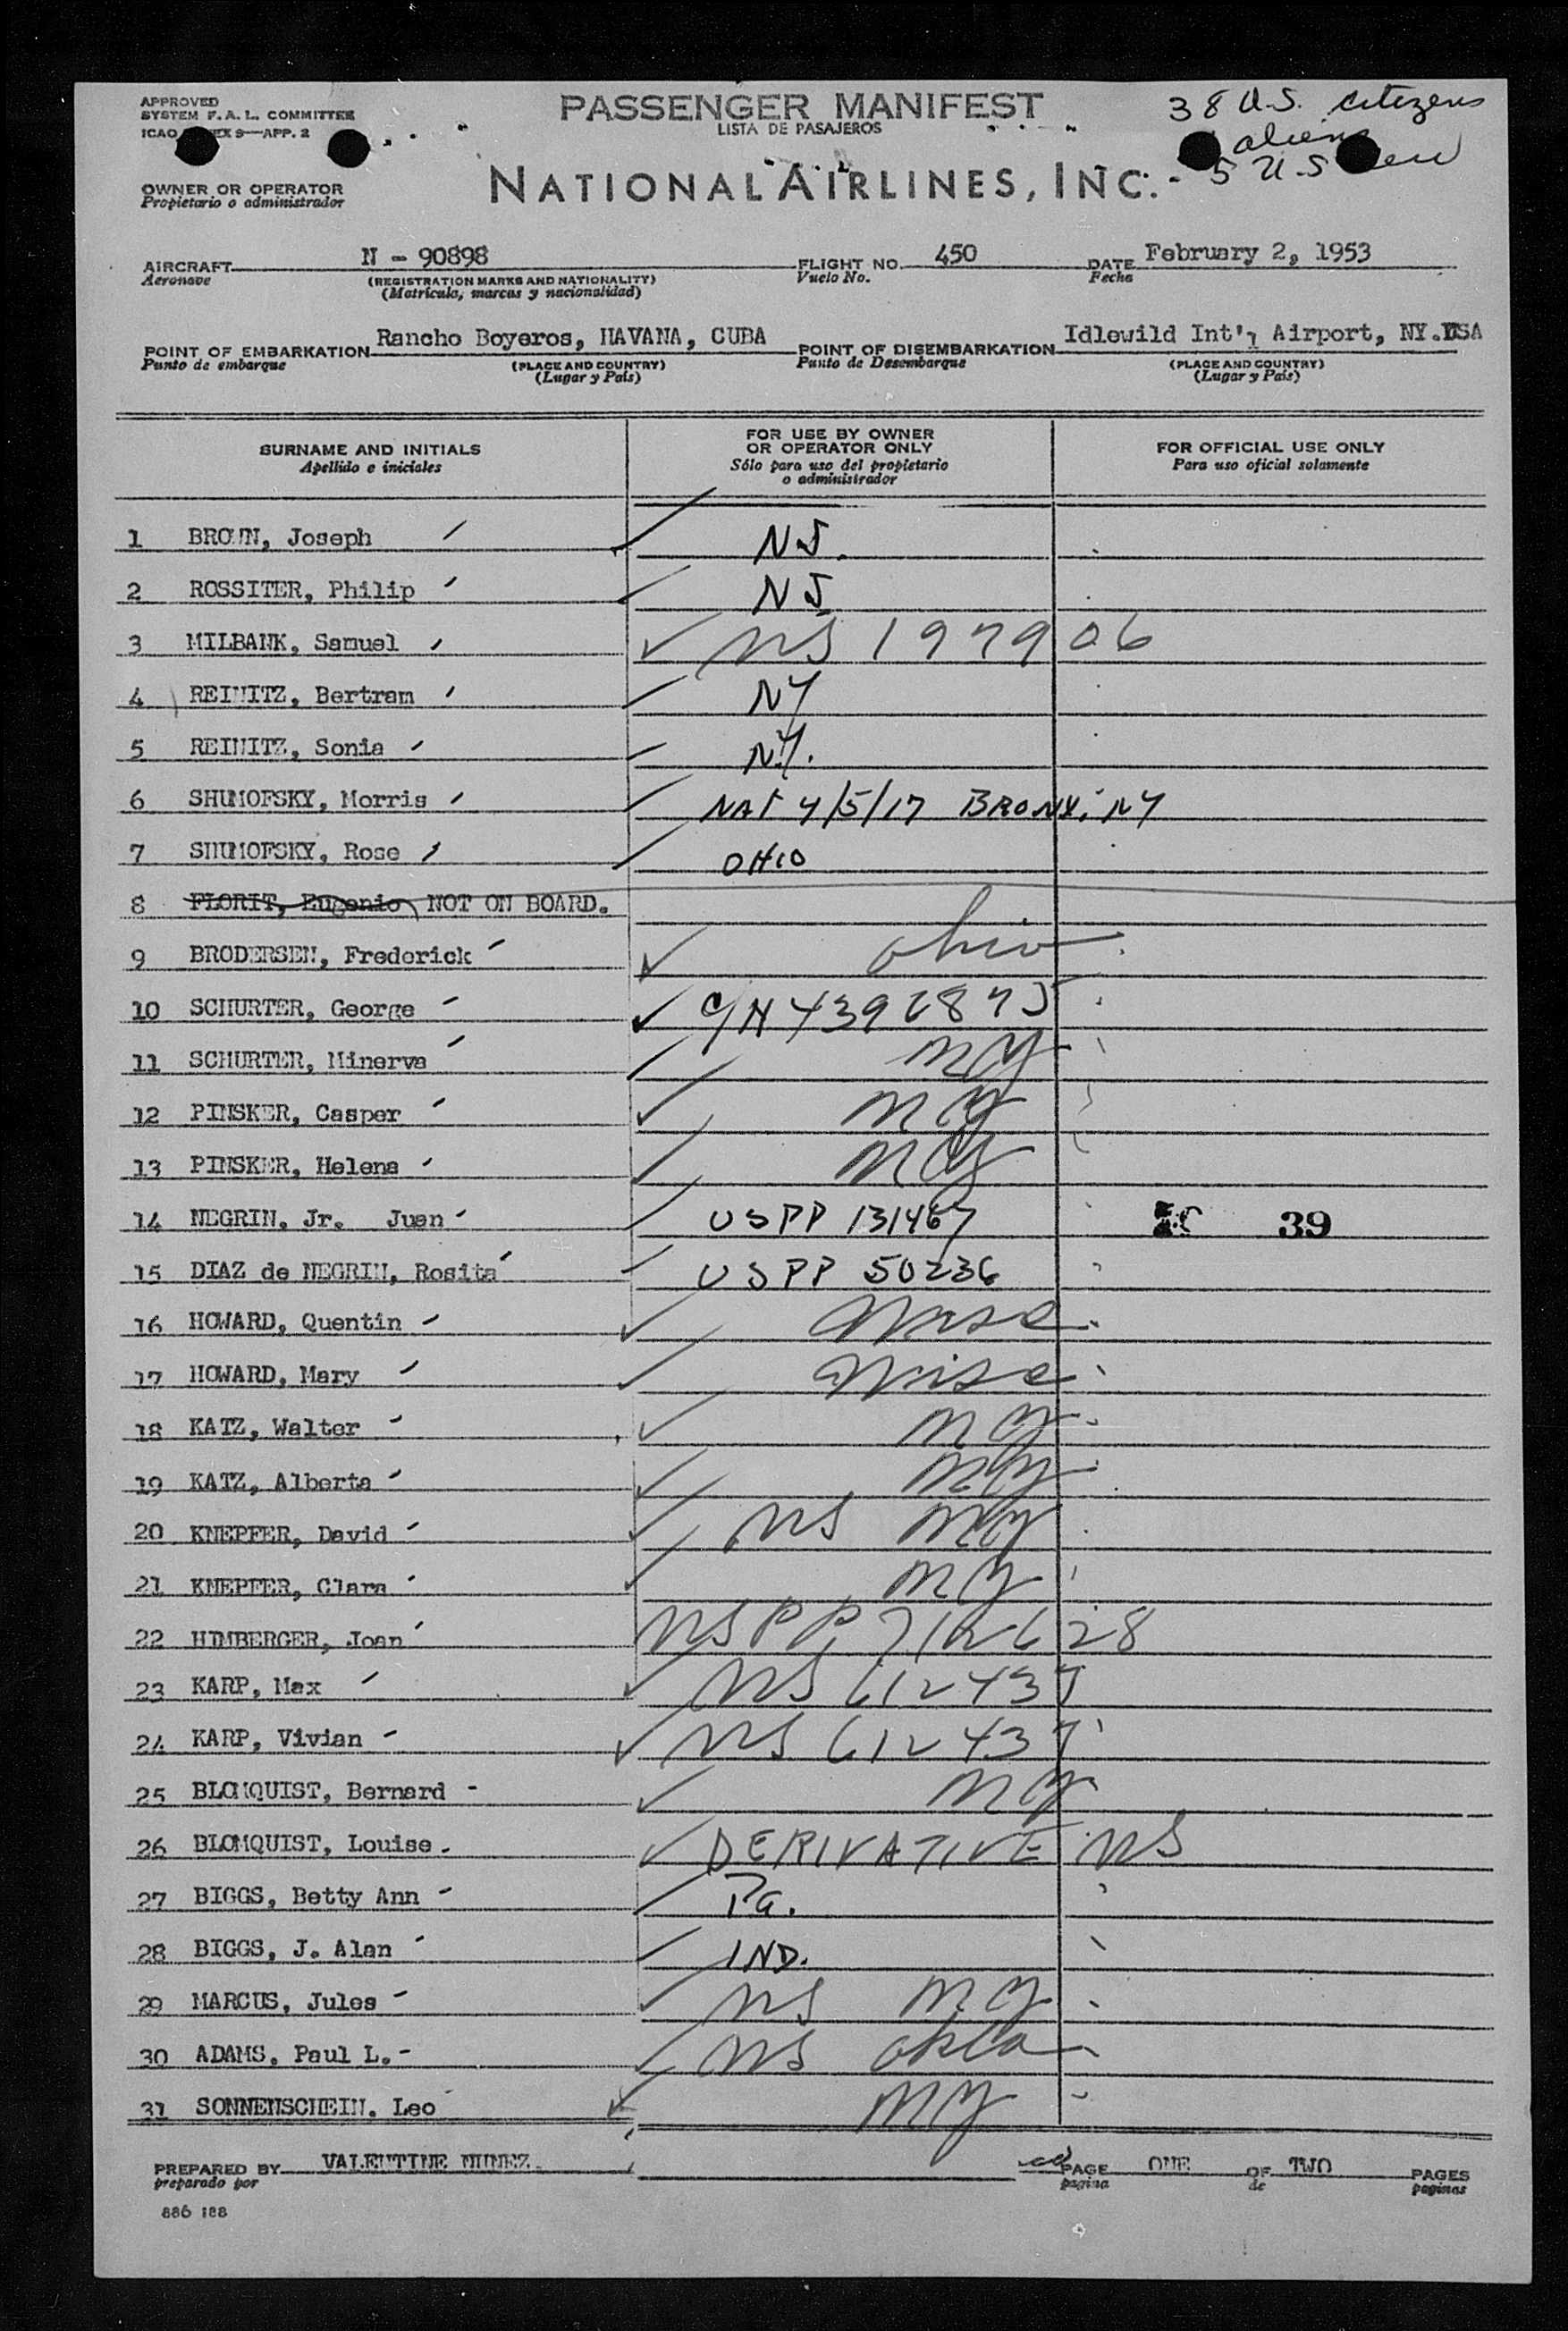 APPROVED
SYSTEM F. A. L. COMMITTEE
ICAO EX 9—APP. 2
PASSENGER MANIFEST
LISTA DE PASAJEROS
38 U.S. citizens
aliens
5 U.S
OWNER OR OPERATOR
Propietario o administrador
NATIONAL AIRLINES, INC.
AIRCRAFT N - 90898 FLIGHT NO. 450 DATE February 2, 1953
Aeronave (REGISTRATION MARKS AND NATIONALITY) Vuelo No. Fecha
(Matrícula, marcas y nacionalidad)
POINT OF EMBARKATION Rancho Boyeros, HAVANA, CUBA POINT OF DISEMBARKATION Idlewild Int'l Airport, NY. USA
Punto de embarque (PLACE AND COUNTRY) Punto de Desembarque (PLACE AND COUNTRY)
(Lugar y País) (Lugar y País)
SURNAME AND INITIALS
Apellido e iniciales
FOR USE BY OWNER
OR OPERATOR ONLY
Sólo para uso del propietario
o administrador
FOR OFFICIAL USE ONLY
Para uso oficial solamente
1 BROWN, Joseph NJ.
2 ROSSITER, Philip NJ
3 MILBANK, Samuel US 197906
4 REINITZ, Bertram NY
5 REINITZ, Sonia NY.
6 SHUMOFSKY, Morris NAT 4/5/17 BRONX, NY
7 SHUMOFSKY, Rose OHIO
8 FLORIT, Eugenio NOT ON BOARD.
9 BRODERSEN, Frederick Ohio
10 SCHURTER, George C/N 4392875
11 SCHURTER, Minerva NY
12 PINSKER, Casper NY
13 PINSKER, Helena NY
14 NEGRIN, Jr. Juan USPP 131467 39
15 DIAZ de NEGRIN, Rosita USPP 50236
16 HOWARD, Quentin Wisc.
17 HOWARD, Mary Wisc
18 KATZ, Walter NY
19 KATZ, Alberta NY
20 KNEPFER, David US NY
21 KNEPFER, Clara NY
22 HIMBERGER, Joan USPP
23 KARP, Max US 612437
24 KARP, Vivian US 612437
25 BLOMQUIST, Bernard NY
26 BLOMQUIST, Louise. DERIVATIVE US
27 BIGGS, Betty Ann Pa.
28 BIGGS, J. Alan IND.
29 MARCUS, Jules US NY
30 ADAMS, Paul L. US Okla
31 SONNENSCHEIN, Leo NY
PREPARED BY VALENTINE NUNEZ. PAGE ONE OF TWO PAGES
preparado por pagina de paginas
886 188